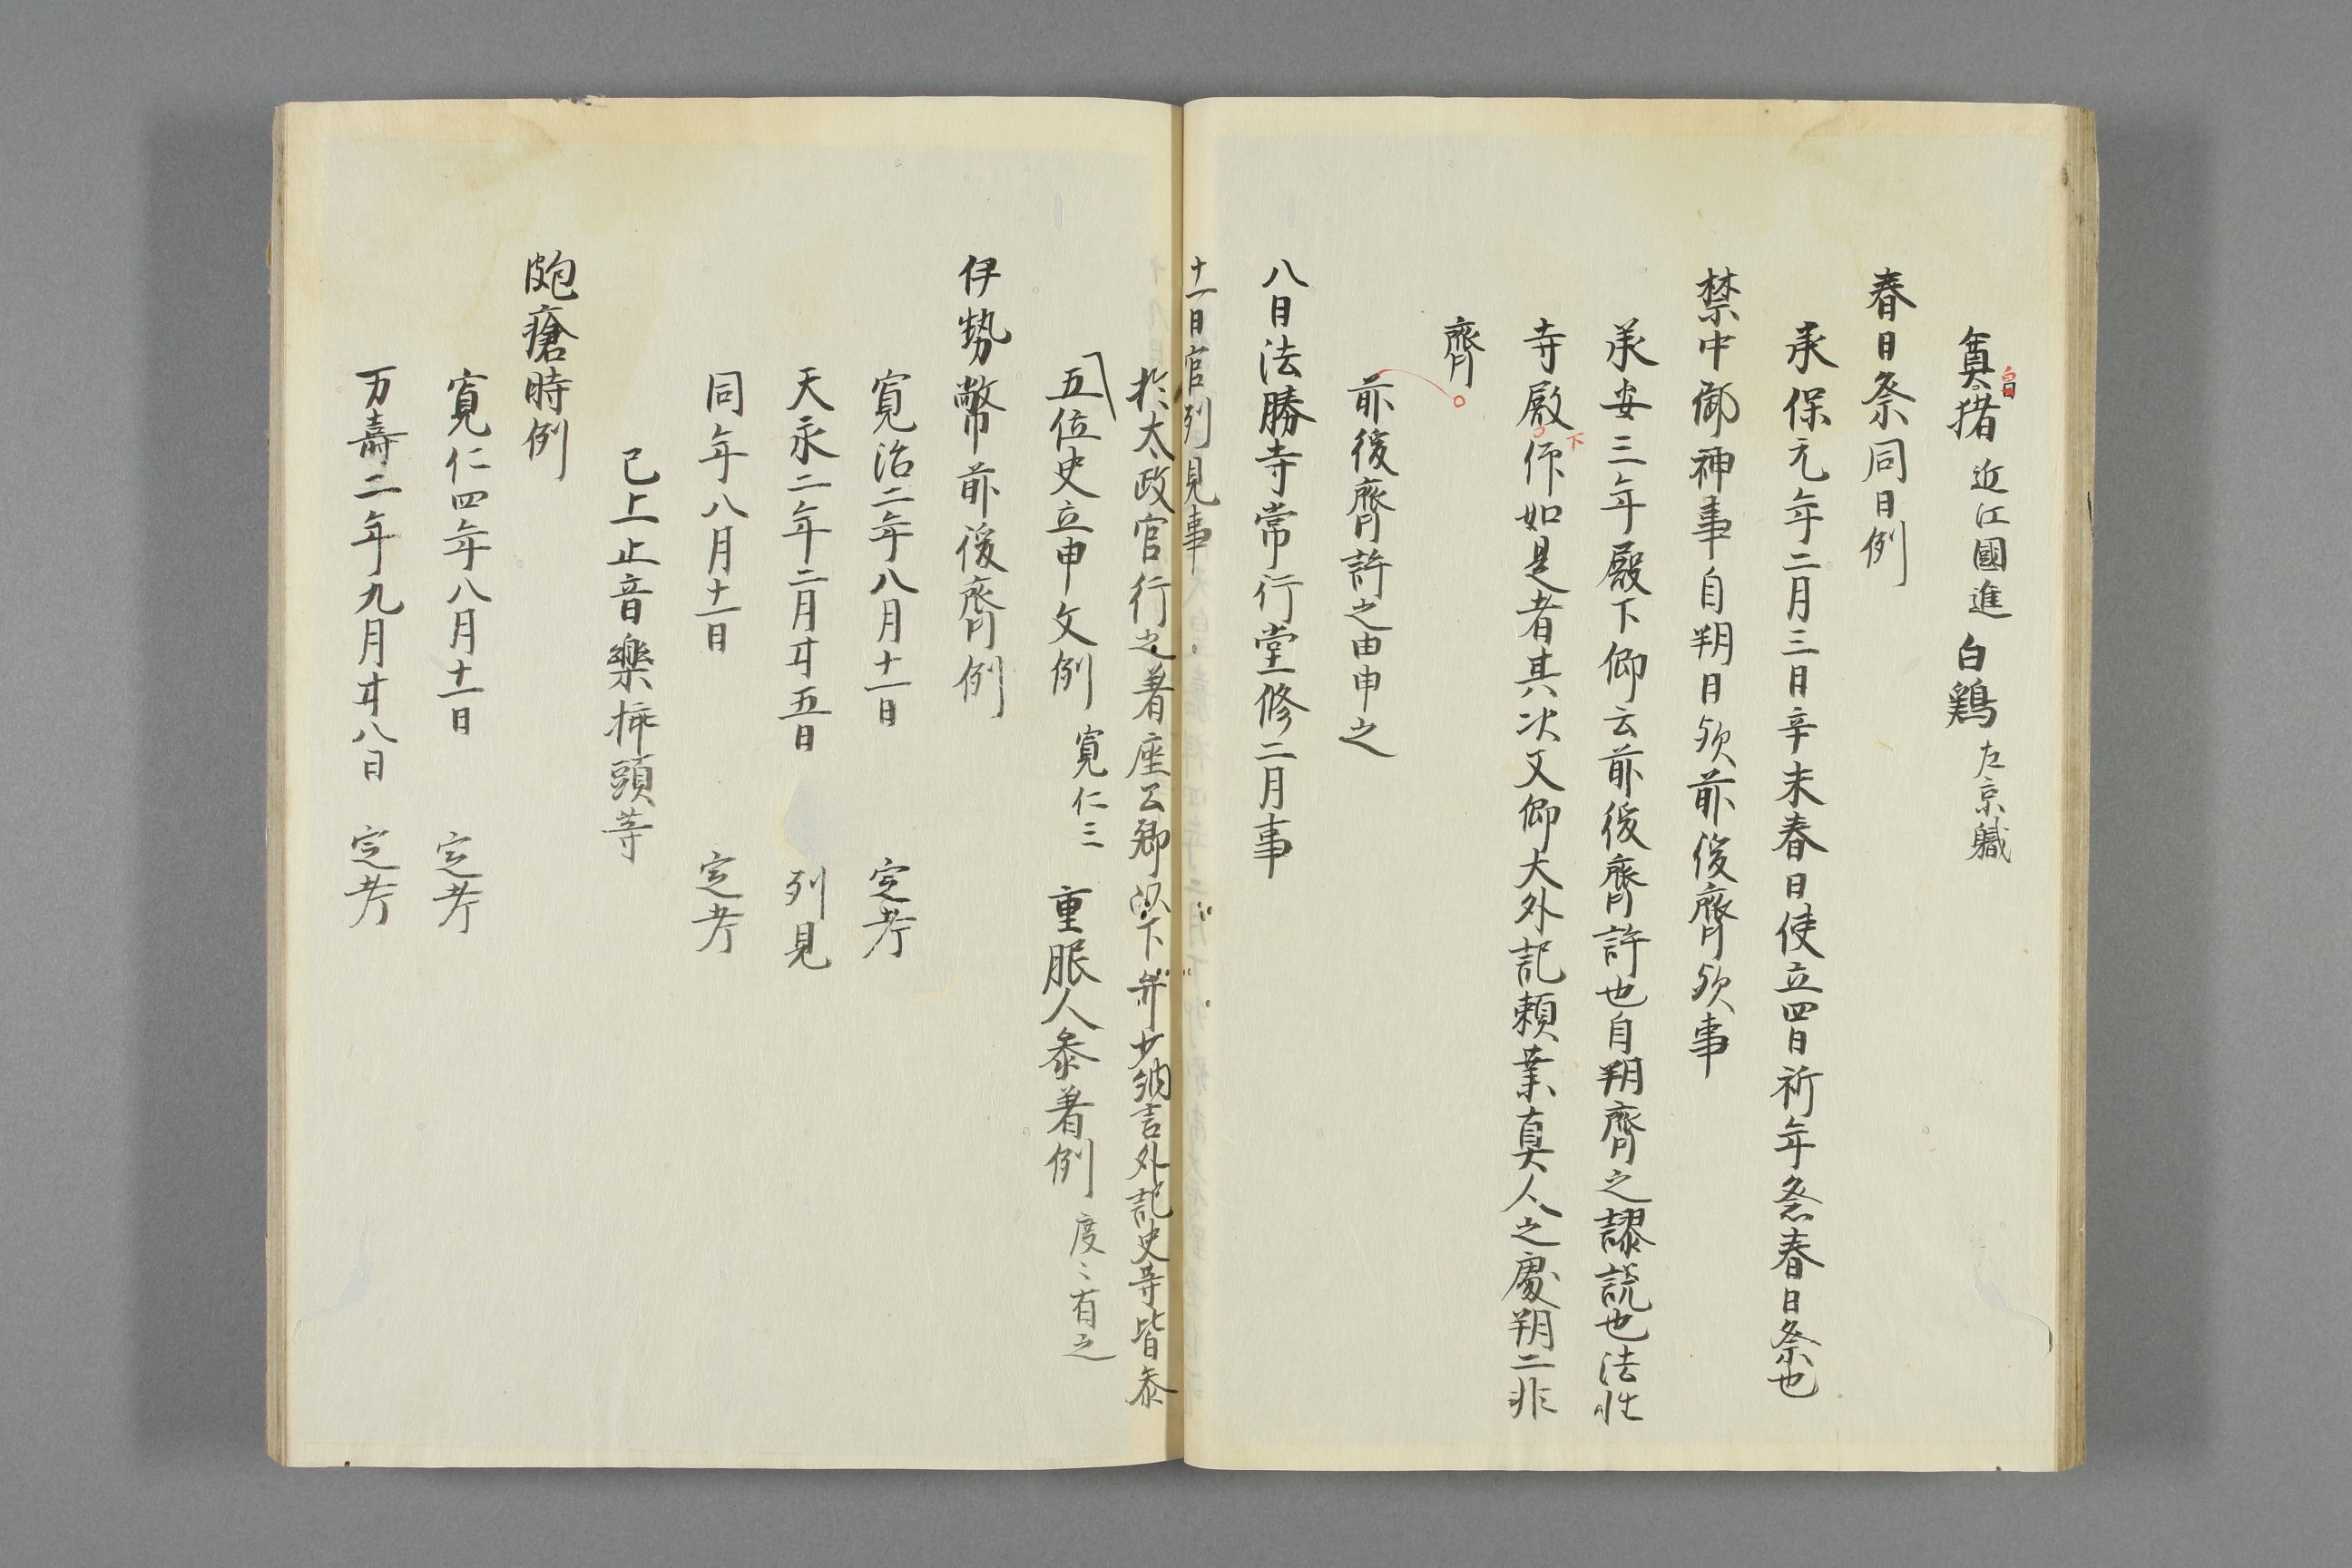 奠猪 近江國進 白鶏 左京職
春日祭同日例
承保元年二月三日辛未春日使立四日祈年祭春日祭也
禁中御神事自朔日欤前後齊欤事
承安三年殿下仰云前後齊許也自朔齊之謬説也法性
寺殿下仰如是者其次又仰大外記頼業真人之處朔二非
齊
前後齊許之由申之
八日法勝寺常行堂修二月事
十一日官列見事
於太政官行之着座公卿以下弁少納言外記史等皆参
五位史立申文例 寛仁三 重服人参着例 度〻有之
伊勢幣前後齊例
寛治二年八月十一日 定考
天永二年二月廿五日 列見
同年八月十一日 定考
已上止音樂挿頭等
皰瘡時例
寛仁四年八月十一日 定考
万壽二年九月廿八日 定考